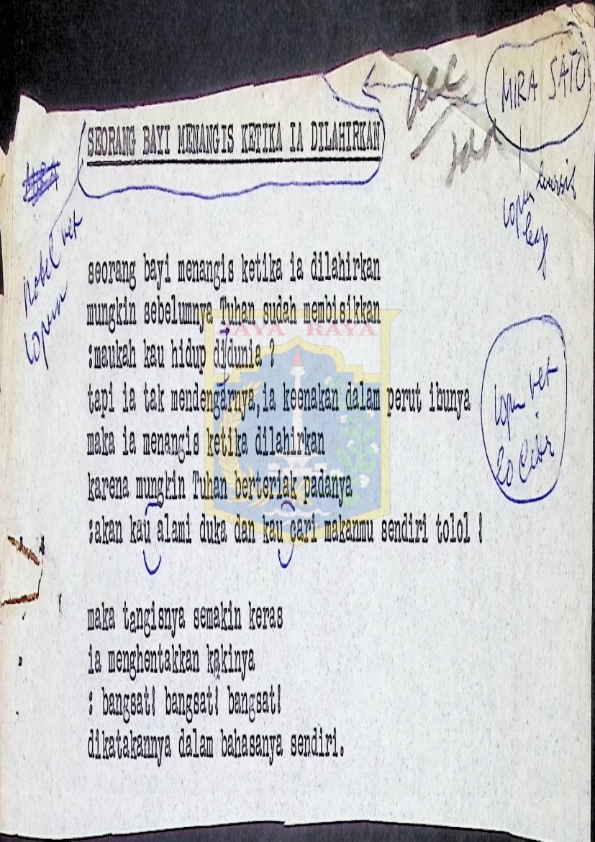 acc
MIRA SATO
SEORANG BAYI MENANGIS KETIKA IA DILAHIRKAN
seorang bayi menangis ketika ia dilahirkan
mungkin sebelumnya Tuhan sudah membisikkan
JAYA RAYA
:maukah kau hidup didunia ?
tapi ia tak mendengarnya,ia keenakan dalam perut ibunya
maka ia menangis ketika dilahirkan
karena mungkin Tuhan berteriak padanya
:akan kau alami duka dan kau cari makanmu sendiri tolol !
maka tangisnya semakin keras
ia menghentakkan kakinya
: bangsat! bangsat! bangsat!
dikatakannya dalam bahasanya sendiri.